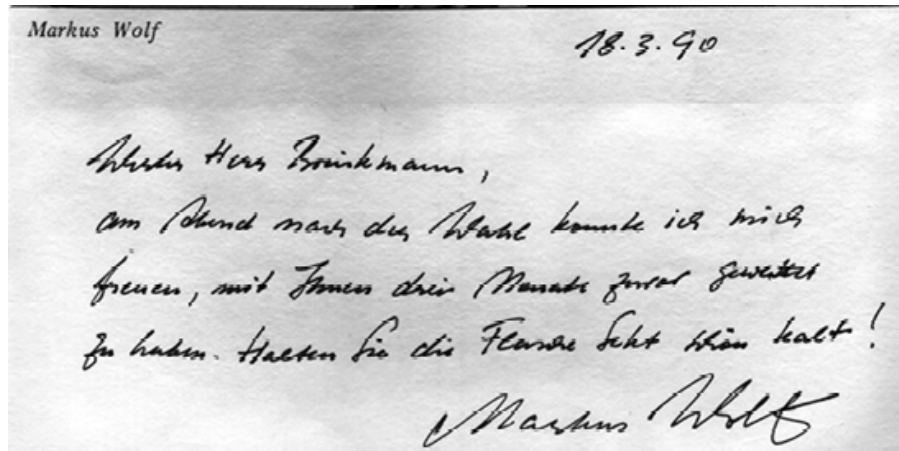 Markus Wolf
18.3.90
Werter Herr Brinkmann,
am Abend nach der Wahl konnte ich mich
freuen, mit Ihnen drei Monate zuvor gewettet
zu haben. Halten Sie die Flasche Sekt schön kalt!
Markus Wolf